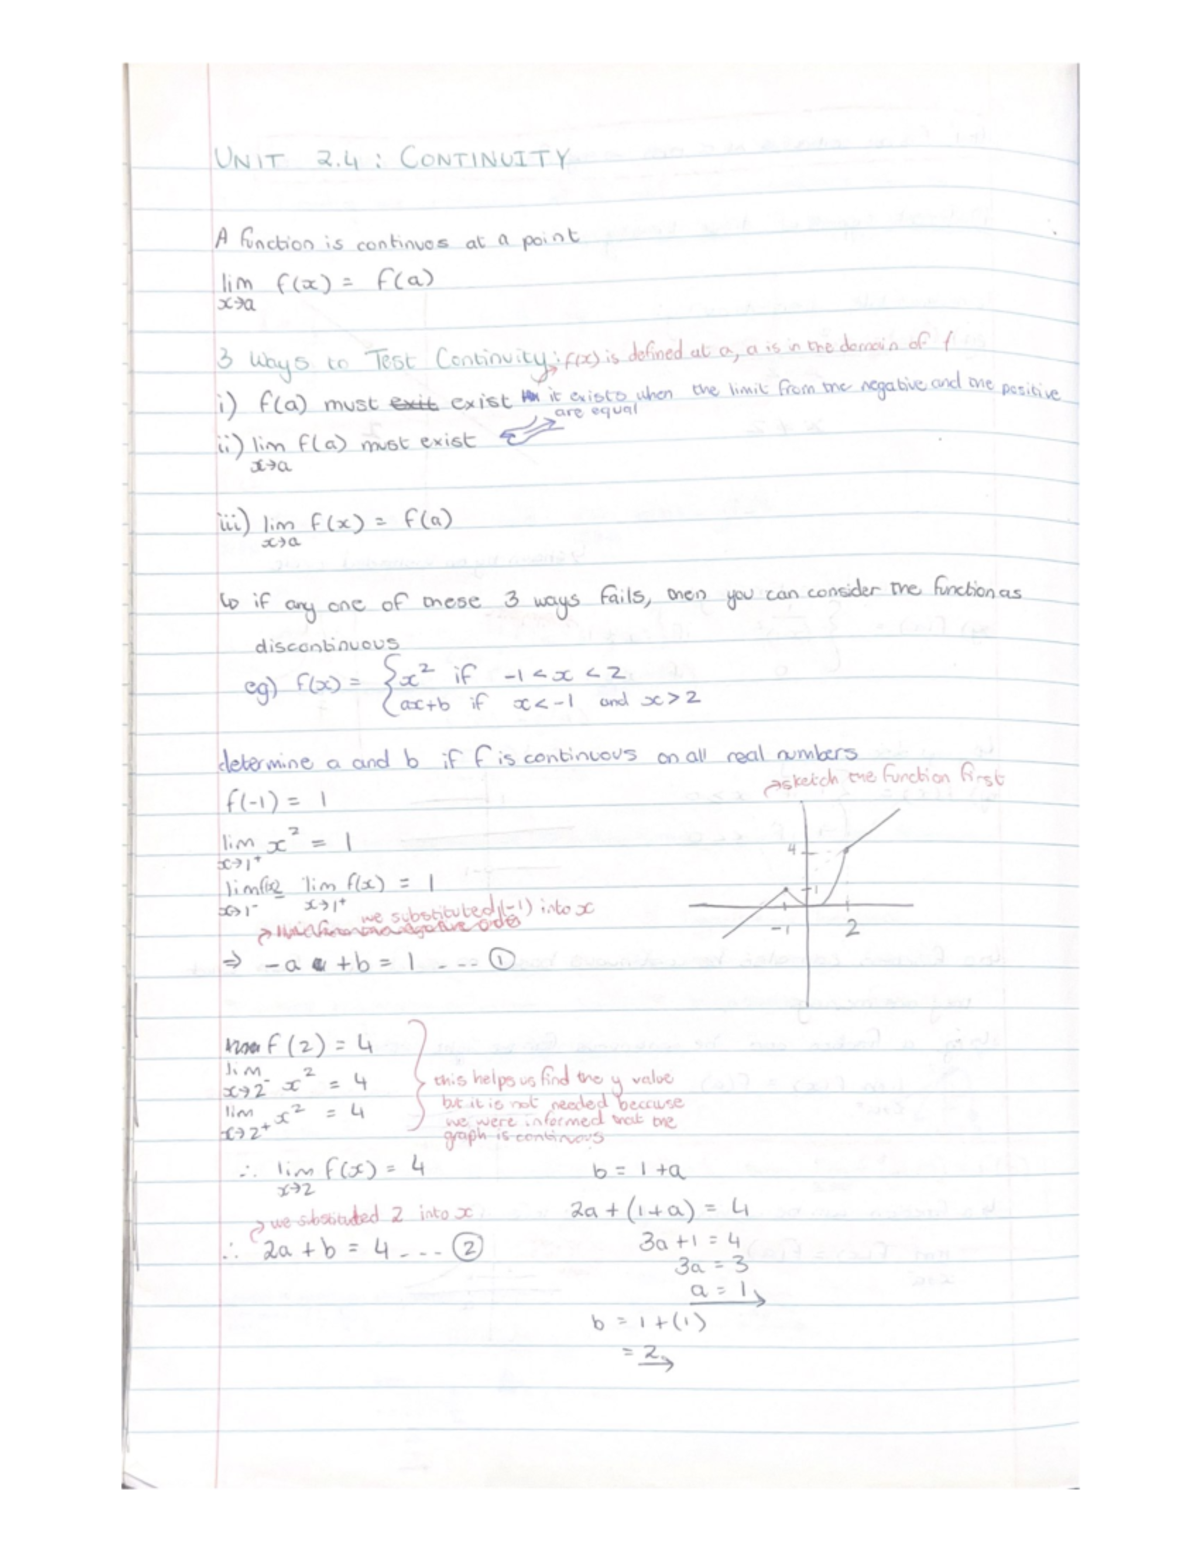 UNIT 2.4 : CONTINUITY
A function is continuos at a point
lim f(x) = f(a)
x→a
3 Ways to Test Continuity: f(x) is defined at a, a is in the domain of f
i) f(a) must exit exist it exists when the limit from the negative and the positive
are equal
ii) lim f(a) must exist
x→a
iii) lim f(x) = f(a)
x→a
↳ if any one of these 3 ways fails, then you can consider the function as
discontinuous
eg) f(x) = { x² if -1 < x < 2
ax+b if x < -1 and x > 2
determine a and b if f is continuous on all real numbers
→ sketch the function first
f(-1) = 1
lim x² = 1
x→1⁺
lim f(x) = lim f(x) = 1
x→1⁻ x→1⁺
we substituted (-1) into x
⇒ -a +b = 1 ---- ①
4
1
-1 2
f(2) = 4
lim x² = 4
x→2⁻
lim x² = 4
x→2⁺
this helps us find the y value
but it is not needed because
we were informed that the
graph is continuous
∴ lim f(x) = 4
x→2
we substituted 2 into x
∴ 2a + b = 4 ---- ②
b = 1 + a
2a + (1+a) = 4
3a + 1 = 4
3a = 3
a = 1
b = 1 + (1)
= 2